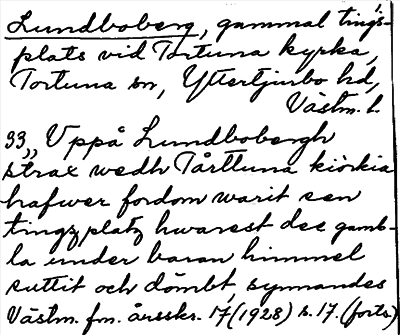 Lundboberg, gammal tings-
plats vid Tortuna kyrka,
Tortuna sn, Yttertjurbo hd,
Västm. l.
33,, Uppå Lundbobergh
strax wedh Tårtluna kiörkia
hafwer fordom warit een
tingz platz hwarest dee gamb-
la under baran himmel
suttit och dömbt, synnandes
Västm. fm. årsskr. 17 (1928) s. 17. (forts)